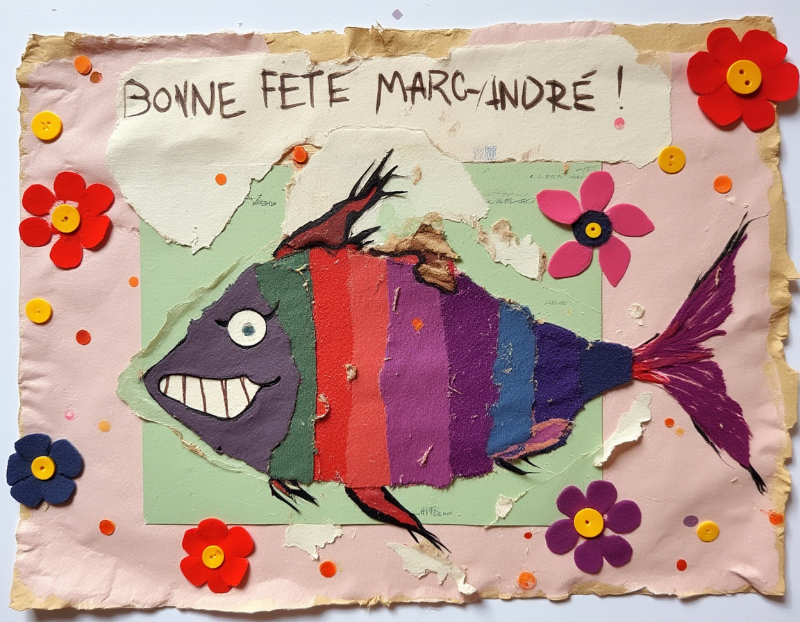 BONNE FETE MARC-ANDRÉ !